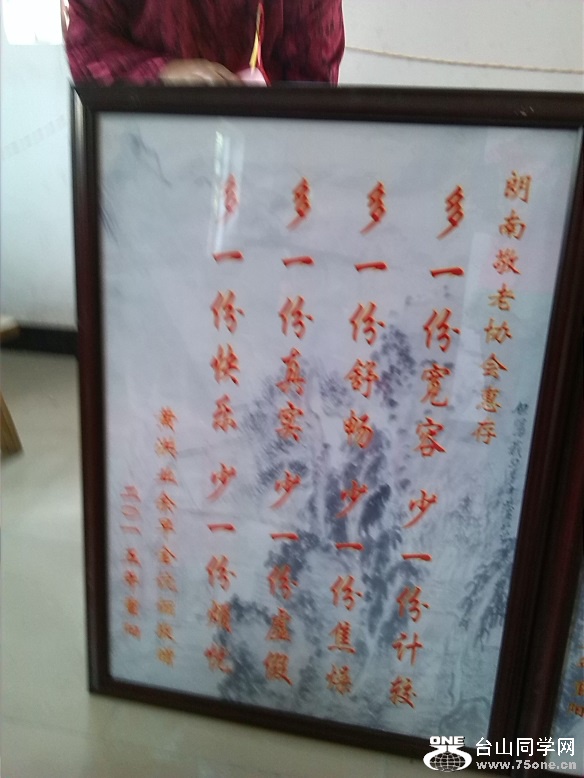 朗南敬老协会惠存
多一份宽容少一份计较
多一份舒畅少一份焦燥
多一份真实少一份虚假
多一份快乐少一份烦忧
敬赠
二〇一五年
ONE
台山同学网
www.75one.cn